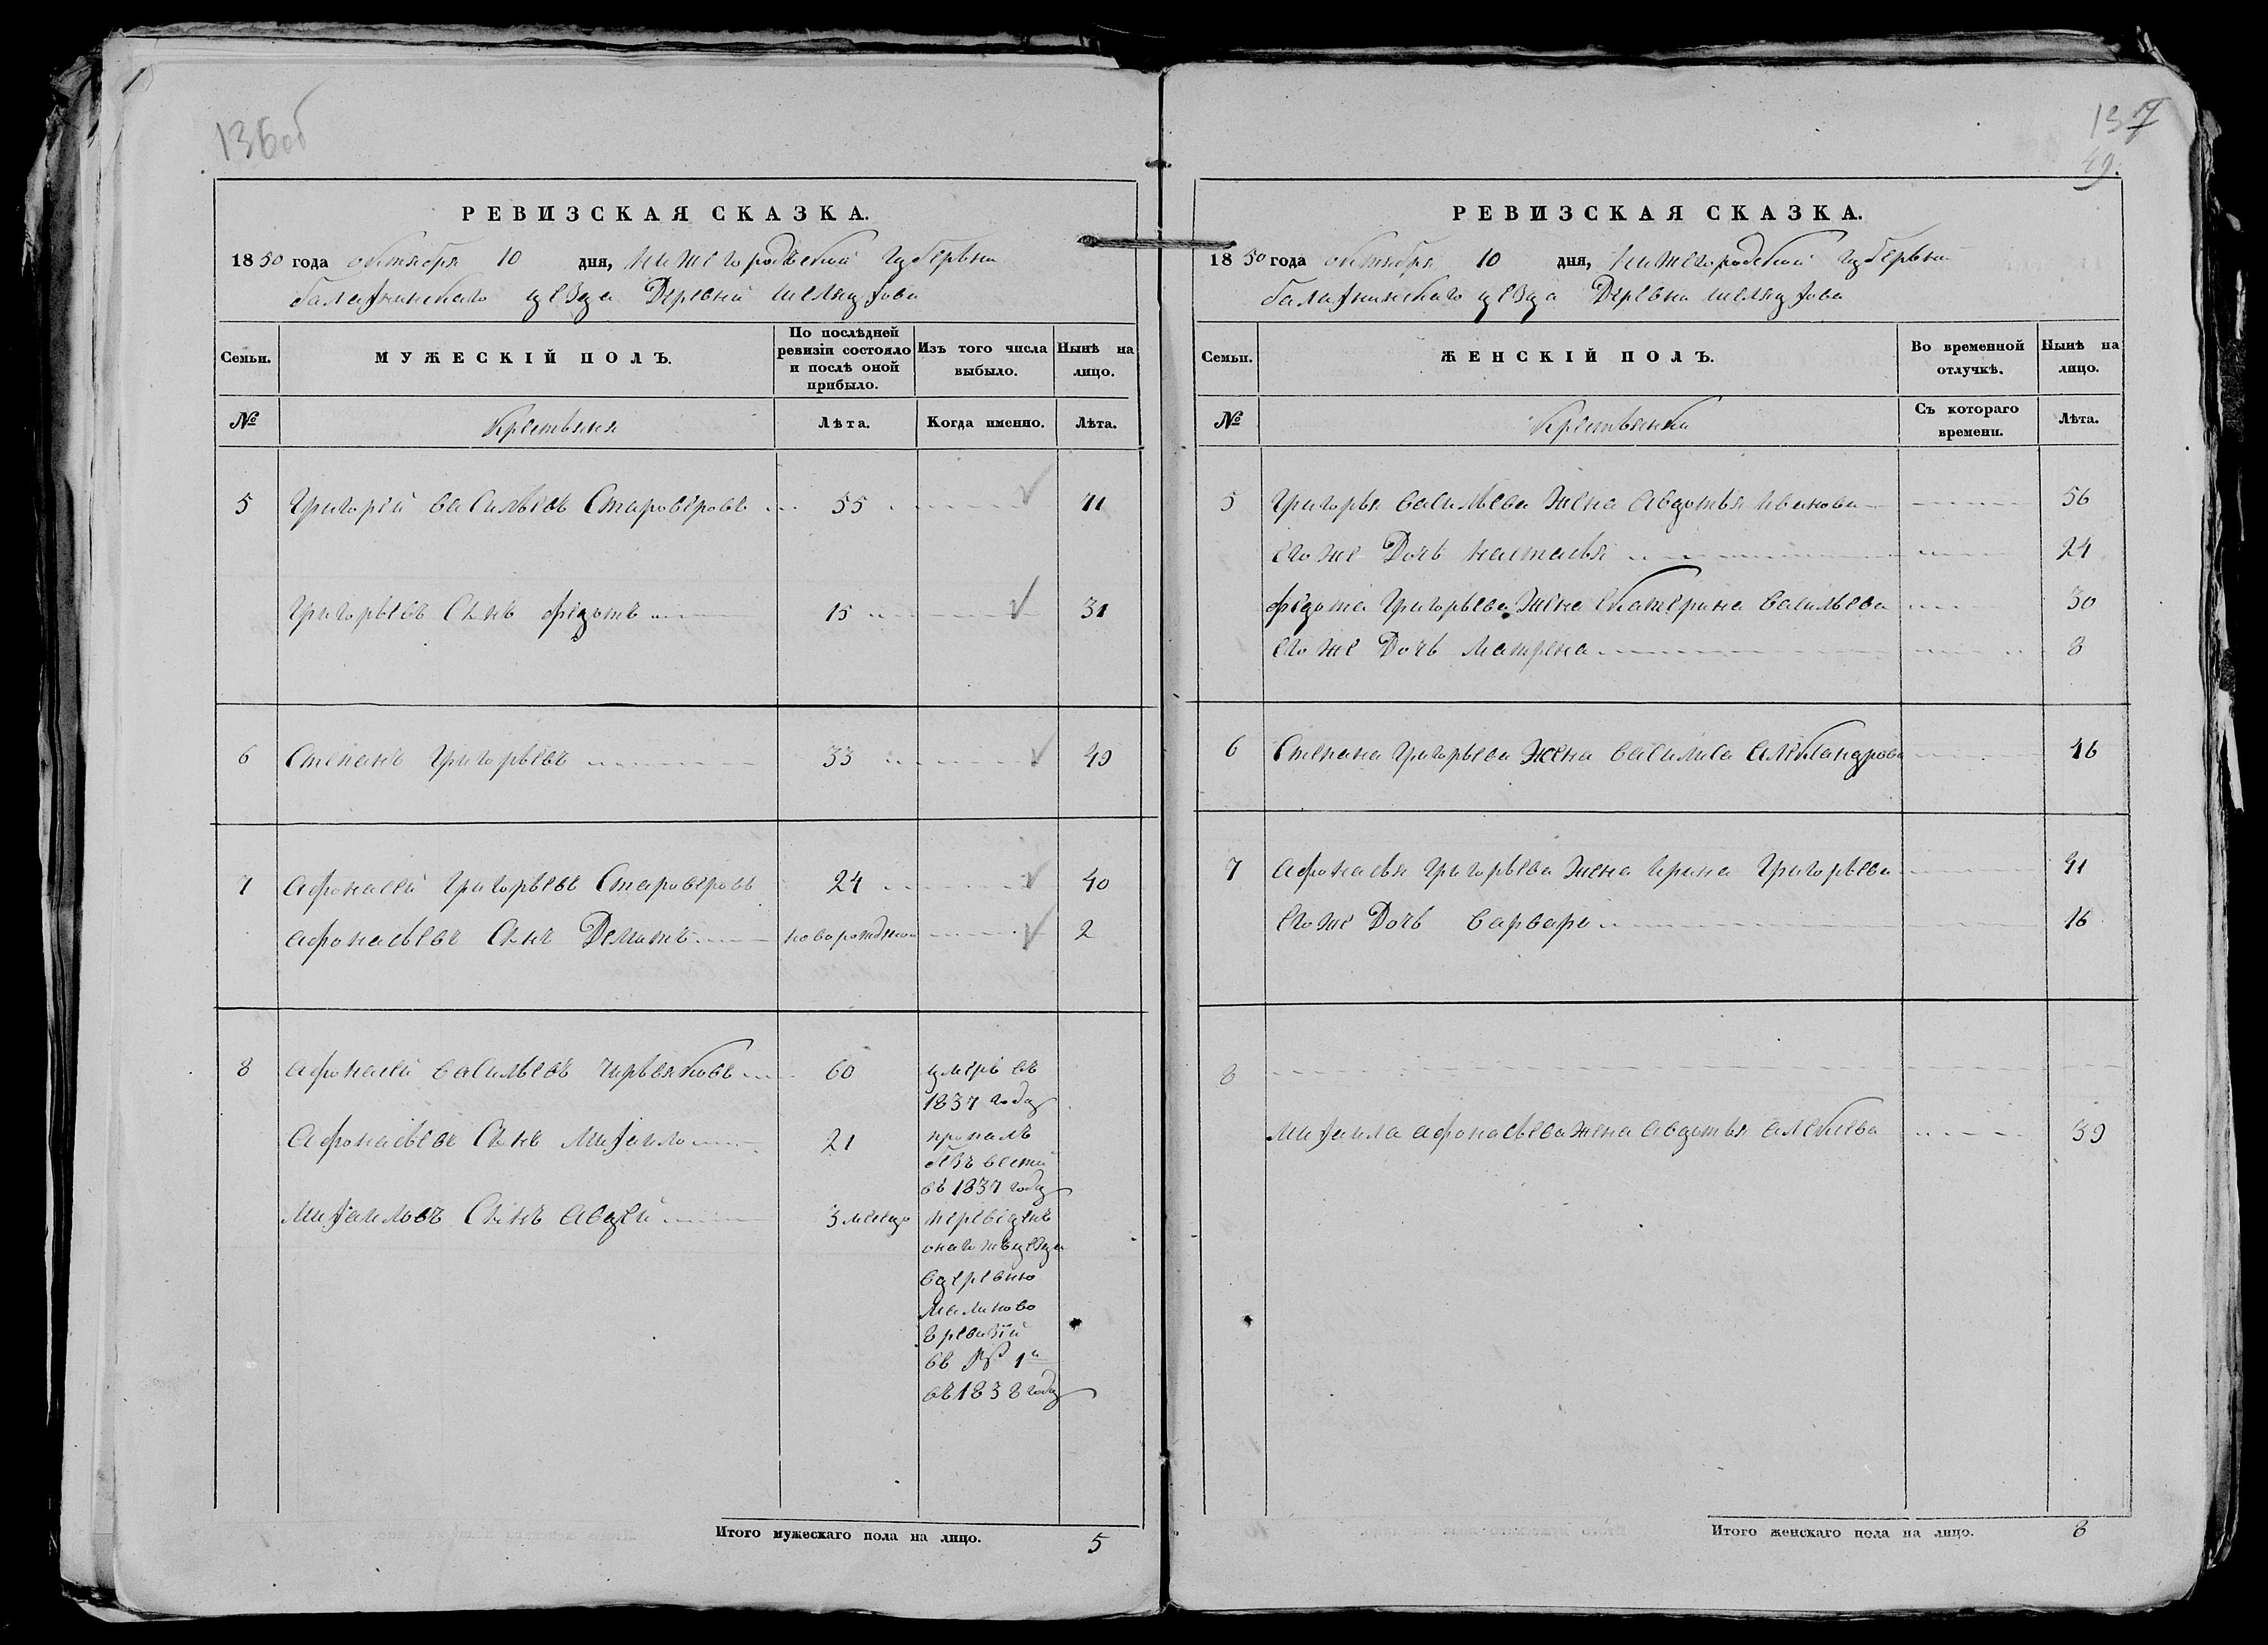 136об
РЕВИЗСКАЯ СКАЗКА.
1850 года октября 10 дня, Нижегородской губерьни
балахнинскаго уезда Деревни шелаухова
Семьи. МУЖЕСКІЙ ПОЛЪ. По послѣдней ревизіи состояло и послѣ оной прибыло. Изъ того числа выбыло. Нынѣ на лицо.
№ Крестьяня Лѣта. Когда именно. Лѣта.
5 Григорей васильевъ Староверовъ 55 71
Григорьевъ Сынъ федотъ 15 31
6 Степанъ Григорьевъ 33 49
7 афонасей Григорьевъ Староверовъ 24 40
афонасьевъ Сынъ Деманъ новорожденой 2
8 афонасей васильевъ чирьвяковъ 60 умеръ въ
1837 году
Афонасьевъ Сынъ михаило 21 пропалъ
безъ вести
въ 1837 году
михаиловъ Сынъ авдей 3 месец переведенъ
онагожъ уезда
вдеревню
маликово
8 ревизіи
въ № 1й
въ 1838 году
Итого мужескаго пола на лицо. 5
137
49.
РЕВИЗСКАЯ СКАЗКА.
1850 года октября 10 дня, Нижегородской губерьни
балахнинскаго уезда Деревни шелаухова
Семьи. ЖЕНСКІЙ ПОЛЪ. Во временной отлучкѣ. Нынѣ на лицо.
№ Крестьянки Съ котораго времени. Лѣта.
5 Григорья васильева жена авдотья иванова 56
егоже Дочь настасья 24
федота Григорьева жена екатерина васильева 30
егоже Дочь матрена 8
6 Степана Григорьева жена василиса александрова 46
7 афонасья Григорьева жена ирина Григорьева 41
егоже Дочь варвара 16
8
михаила афонасьева жена авдотья алексеева 39
Итого женскаго пола на лицо. 8